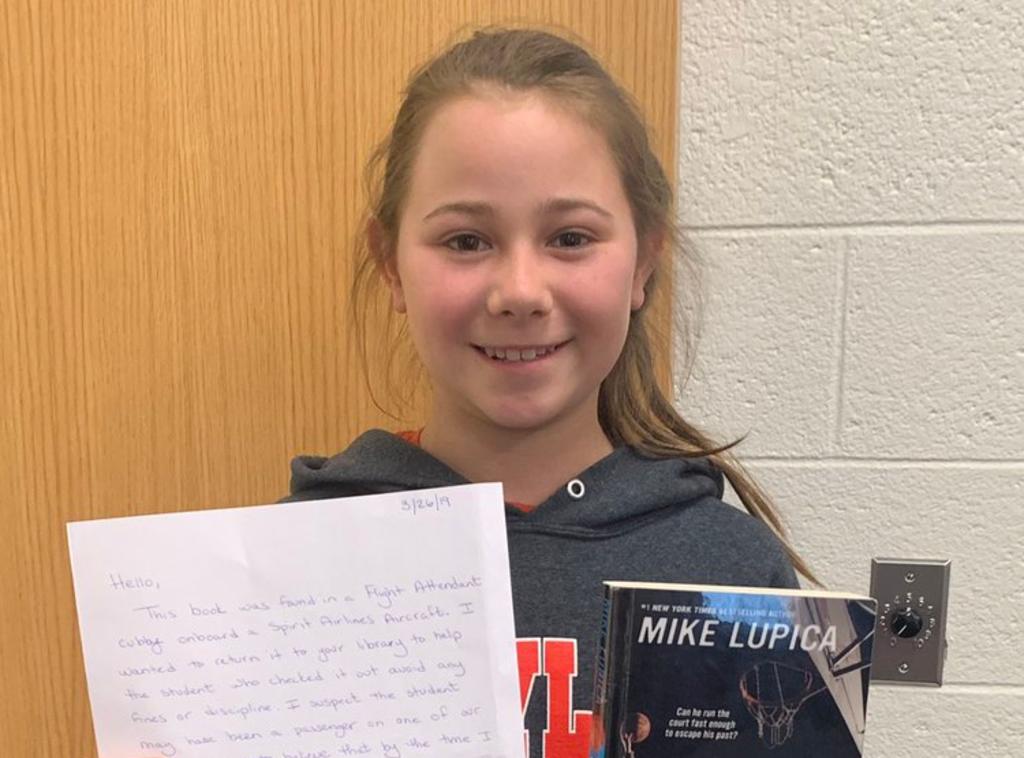 3/26/19
Hello,
This book was found in a Flight Attendant
cubby onboard a Spirit Airlines Aircraft. I
wanted to return it to your library to help
the student who checked it out avoid any
fines or discipline. I suspect the student
may have been a passenger on one of our
to believe that by the time I
VL
#1 NEW YORK TIMES BESTSELLING AUTHOR
MIKE LUPICA
Can he run the
court fast enough
to escape his past?